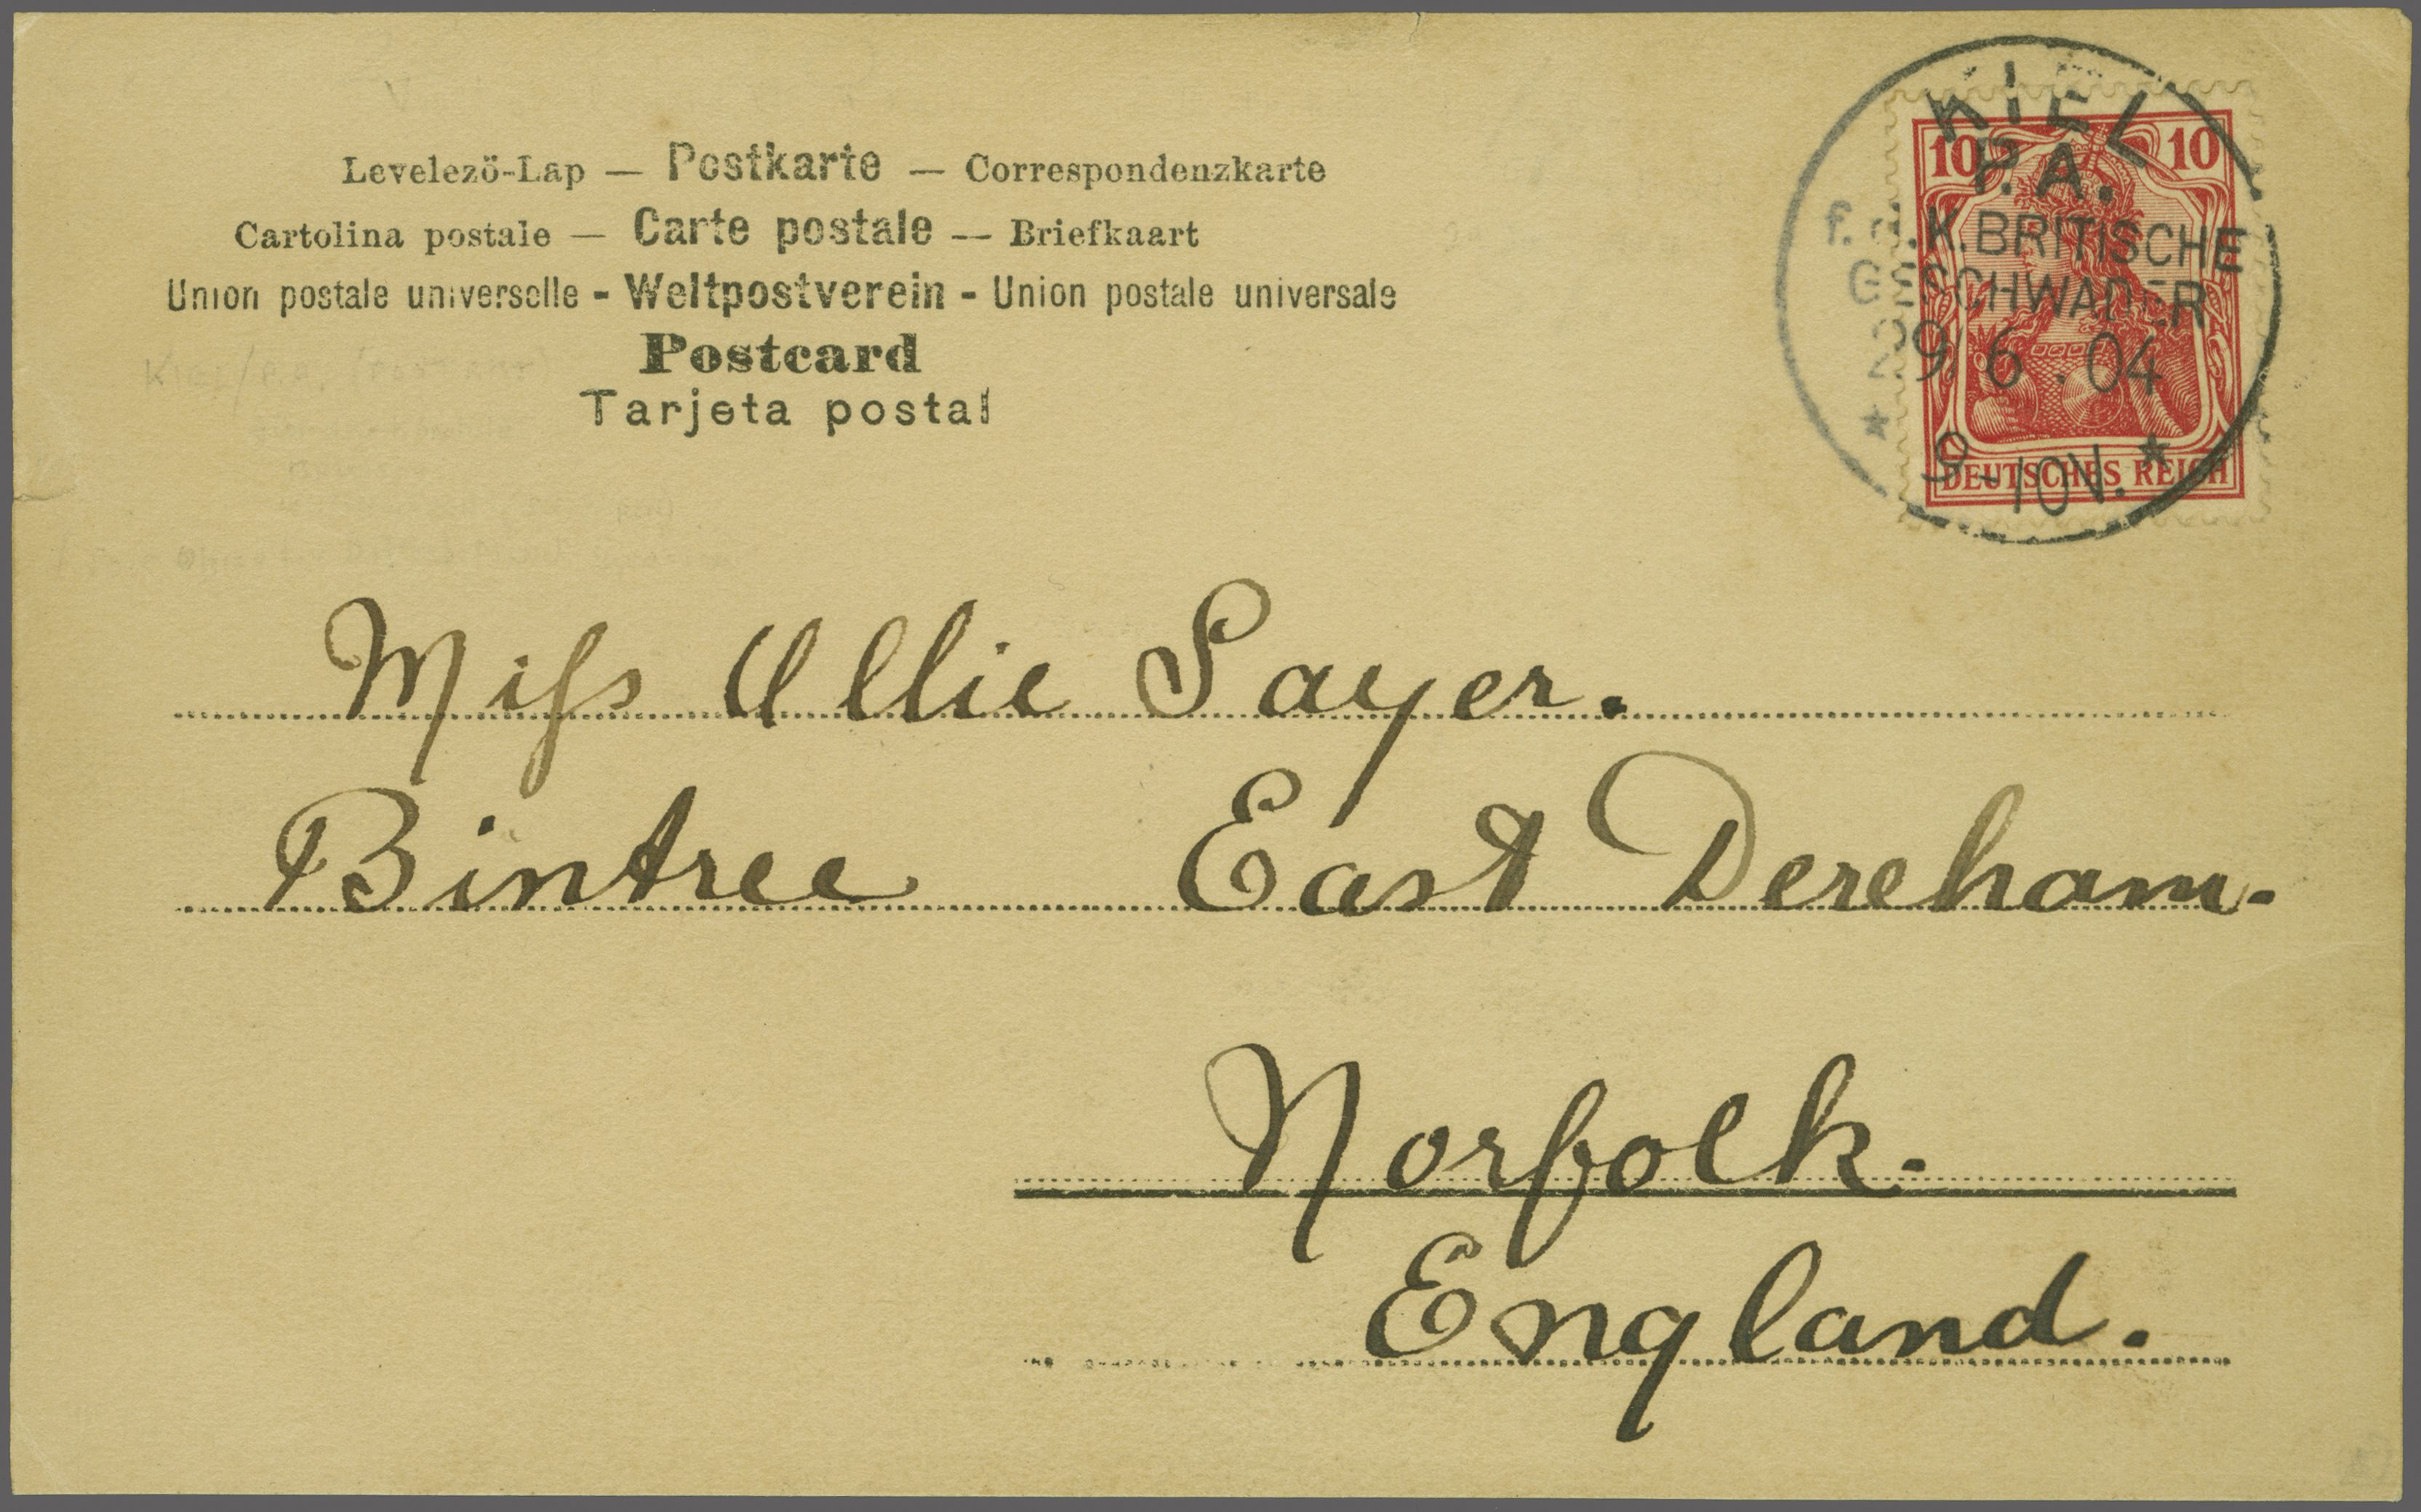 Levelező-Lap — Postkarte — Correspondenzkarte
Cartolina postale — Carte postale — Briefkaart
Union postale universelle - Weltpostverein - Union postale universale
Postcard
Tarjeta postal
KIEL
P.A.
f. d. K. BRITISCHE
GESCHWADER
29. 6. 04
* 9-10V. *
10 10
DEUTSCHES REICH
Miſs Ollie Sayer.
Bintree East Dereham.
Norfolk.
England.